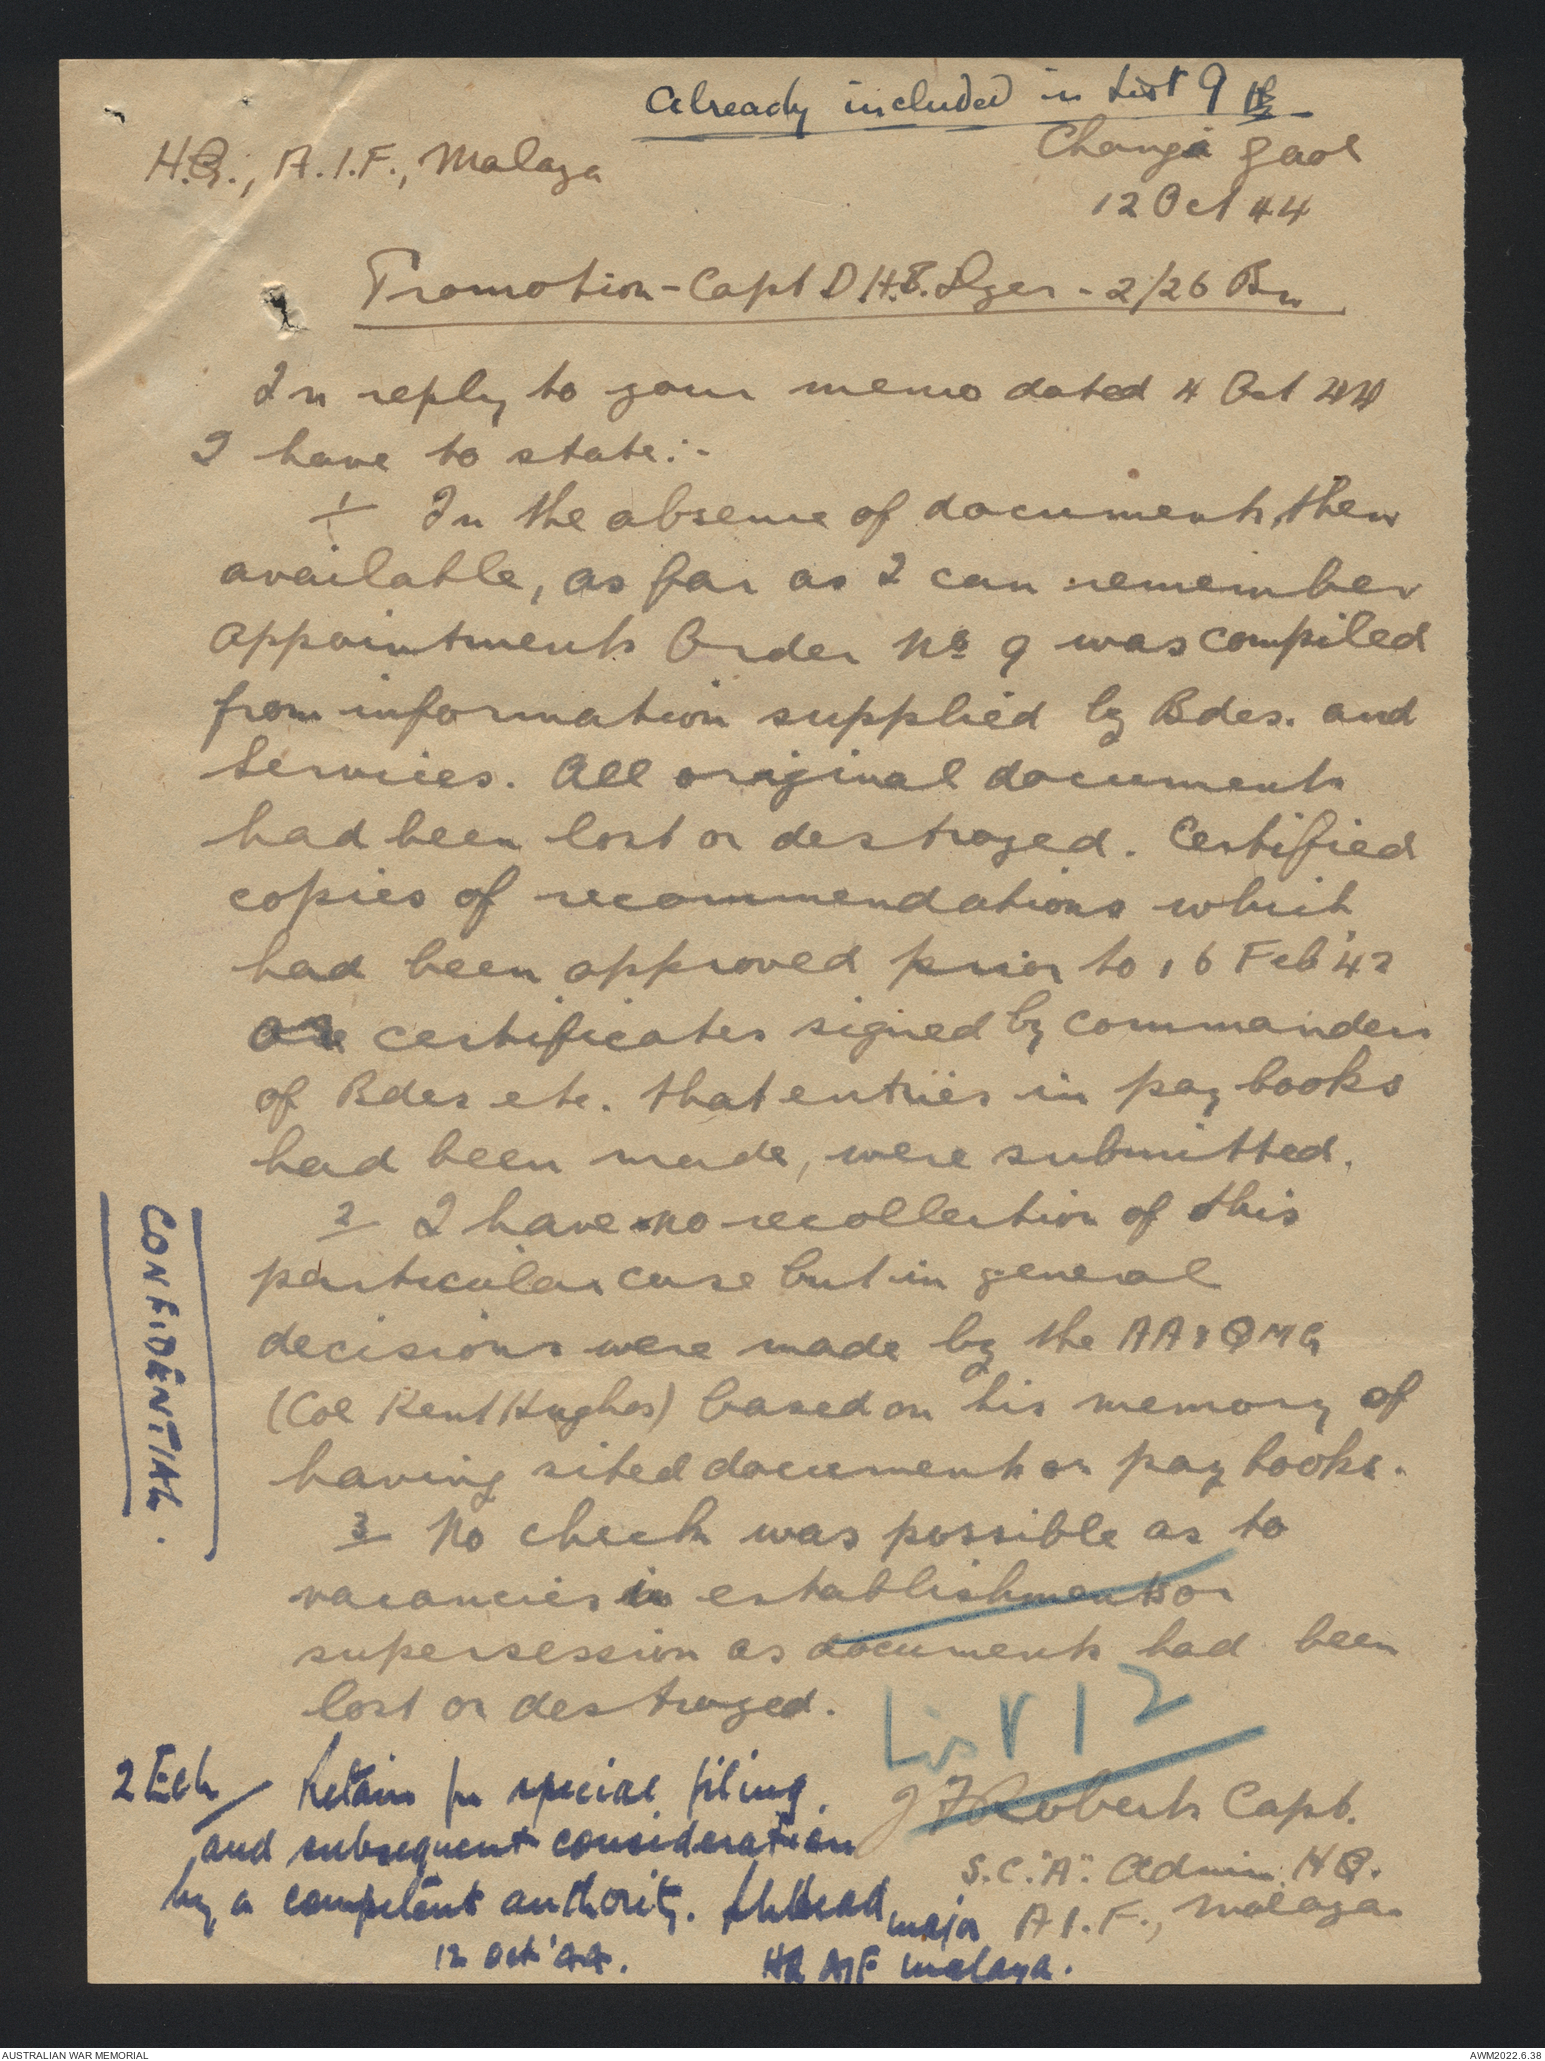 Already included in List 9
H.Q., A.I.F., Malaya
Changi Gaol
12 Oct 44
Promotion - Capt D.H.B. Dyer - 2/26 Bn
In reply to your memo dated 4 Oct 44
I have to state:-
1 In the absence of documents, then
available, as far as I can remember
Appointments Order No 9 was compiled
from information supplied by Bdes. and
Services. All original documents
had been lost or destroyed. Certified
copies of recommendations which
had been approved prior to 16 Feb '42
or certificates signed by commanders
of Bdes etc. that entries in pay books
had been made, were submitted.
2 I have no recollection of this
particular case but in general
decisions were made by the AA & QMG
(Col Kent Hughes) based on his memory of
having sited documents or pay books.
3 No check was possible as to
vacancies in establishments or
supersession as documents had been
lost or destroyed.
List 12
J F Roberts Capt.
S.C. "A". Admin. HQ.
A.I.F., Malaya.
CONFIDENTIAL.
2 Ech Retain for special filing,
and subsequent consideration
by a competent authority.
Major
12 Oct '44.
HQ AIF Malaya.
AUSTRALIAN WAR MEMORIAL
AWM2022.6.38